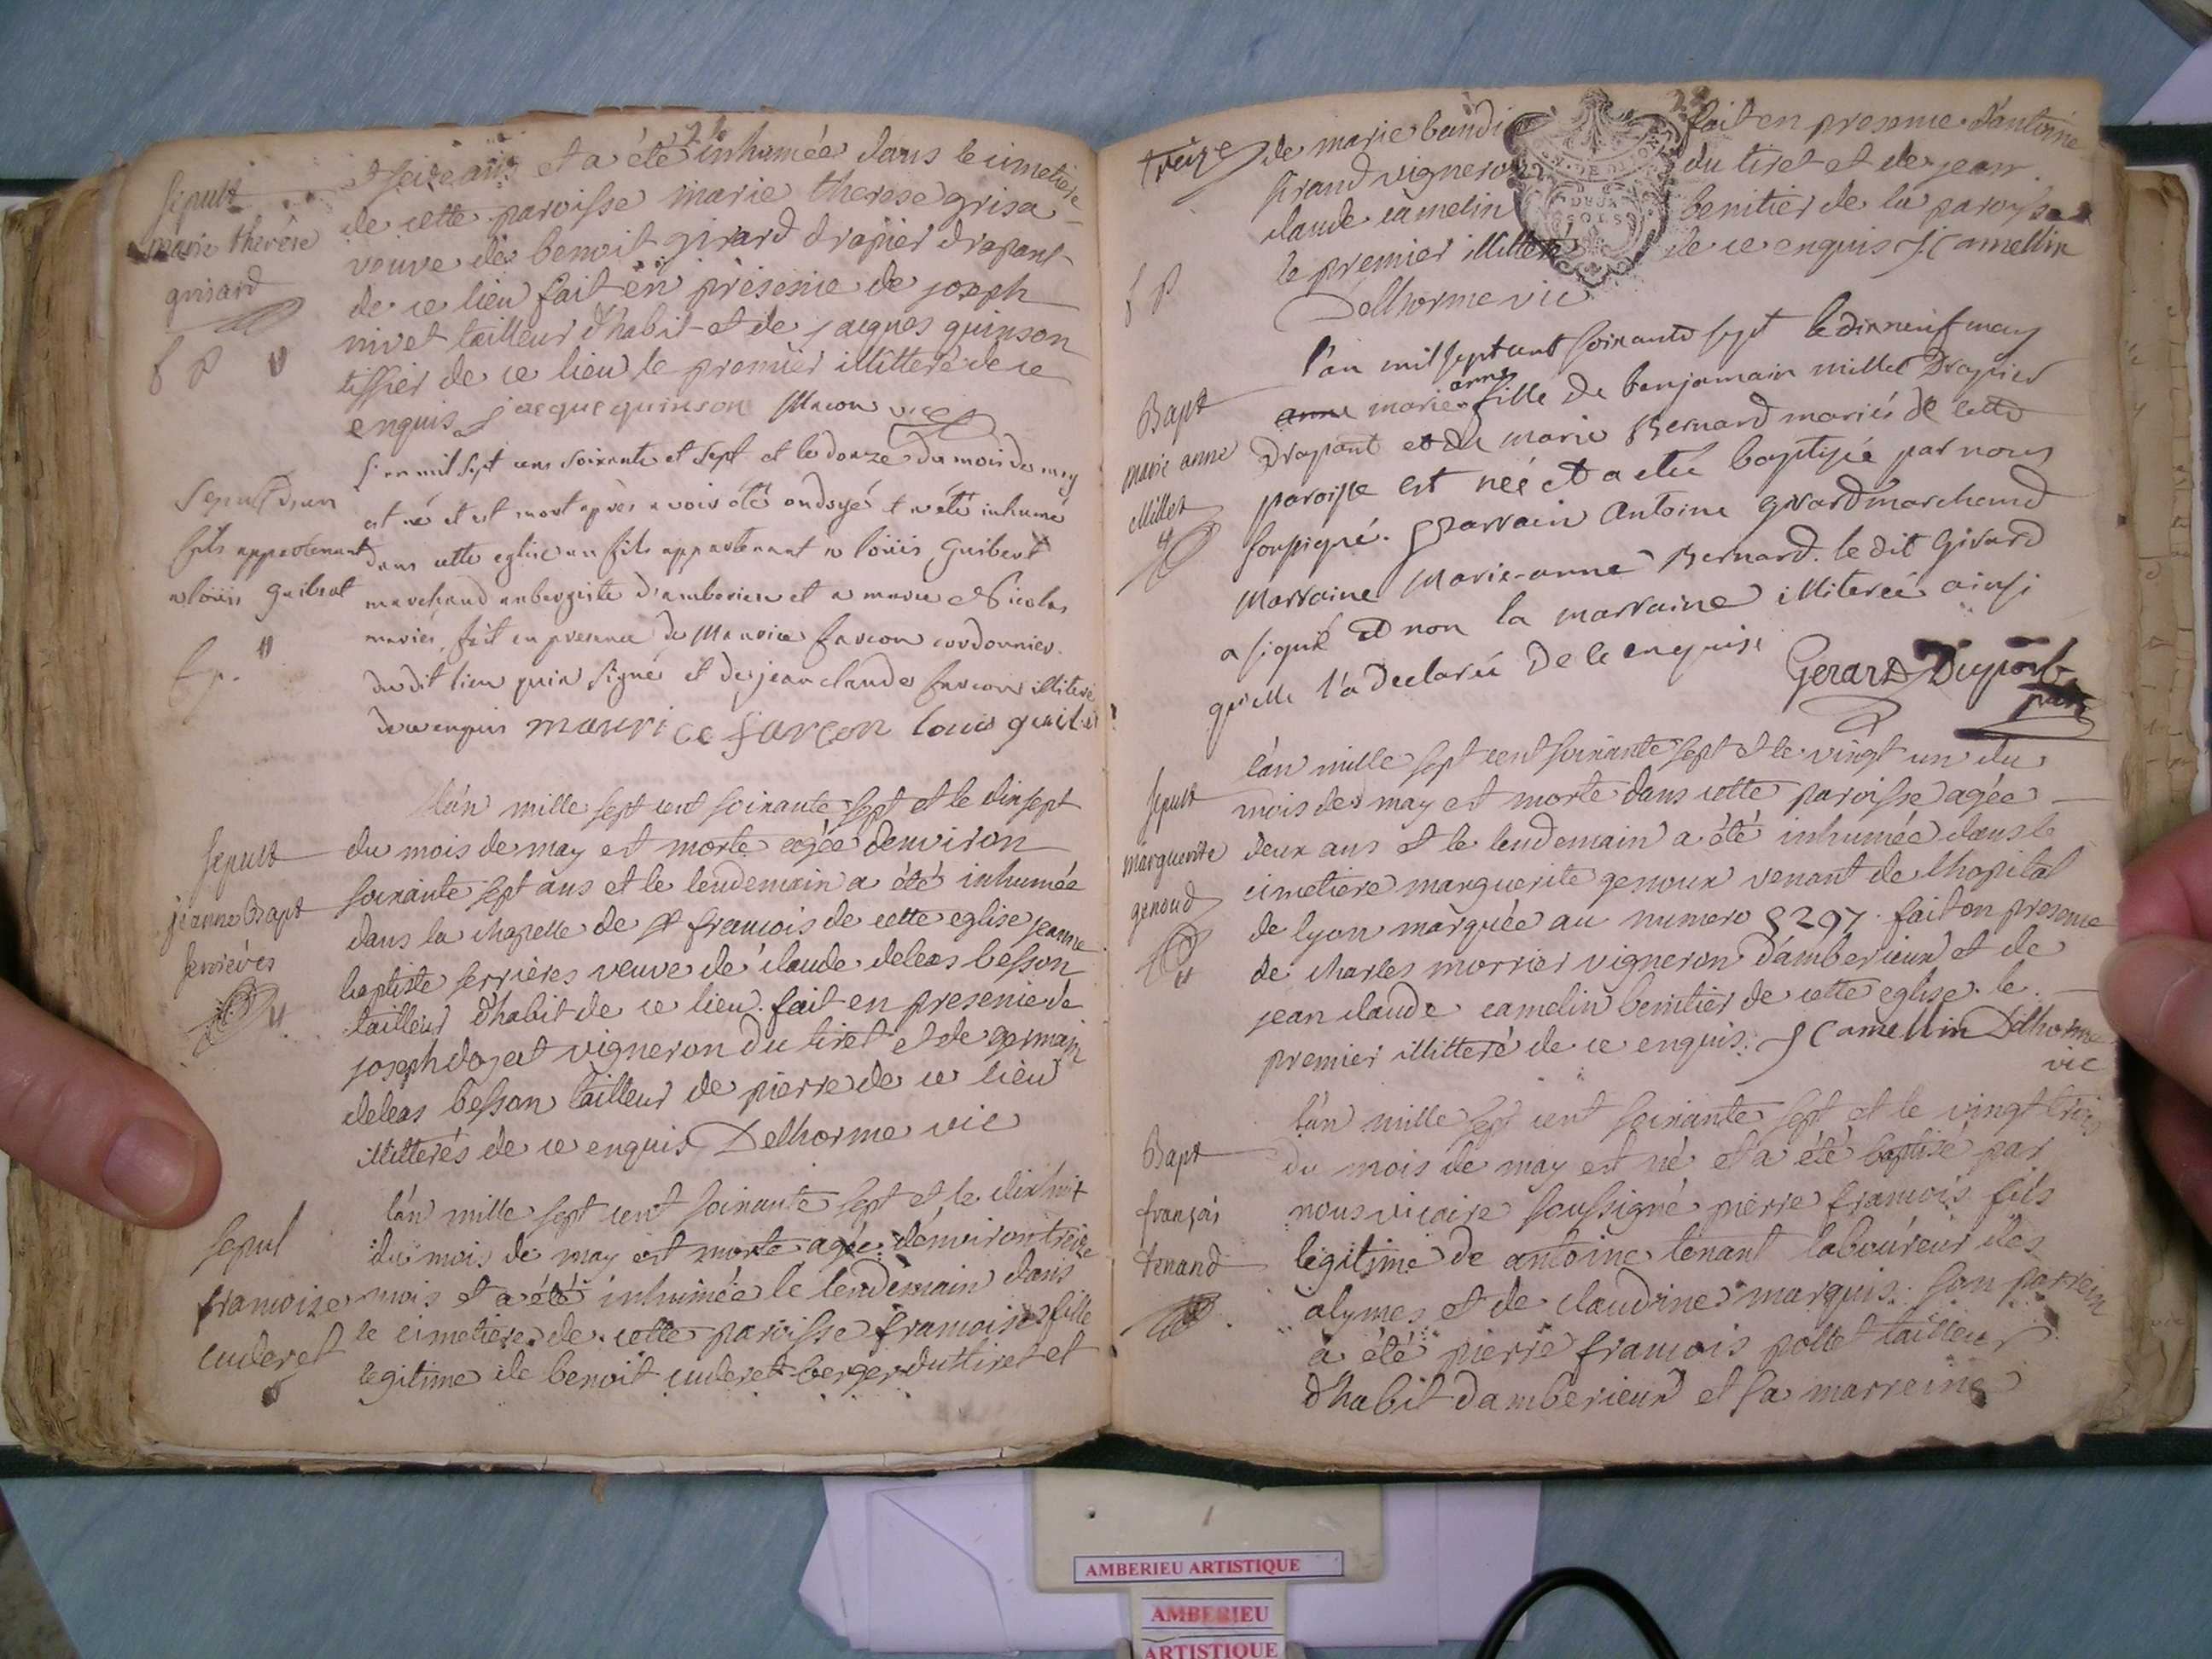 Sepult
marie therese
grisard
f p
et seize ans et a été inhumée dans le cimetiere
de cette paroisse marie therese grisa
veuve de benoit girard drapier drapant
de ce lieu fait en présence de joseph
nivet tailleur d'habit et de jacques quinson
tissier de ce lieu le premier illitteré de ce
enquis jacque quinson Macon vic
Sepult d'un
fils appartenant
a loüis Guibert
f p.
l'an mil sept cens soixante et sept et le douze du mois de may
est né et est mort apres avoir été ondoyé et a été inhumé
dans cette eglise un fils appartenant a loüis Guibert
marchand aubergiste d'amberieu et a marie Nicolas
mariés, fait en presence de Maurice farcon cordonnier
du dit lieu qui a signé et de jean claude farcon illiteré
de ce enquis maurice farcon louis guibert
Sepult
jeanne Bapt
serrieres
l'an mille sept cent soixante sept et le dixsept
du mois de may est morte agée denviron
soixante sept ans et le lendemain a été inhumée
dans la chapelle de st francois de cette eglise jeanne
baptiste serrières veuve de claude deleas besson
tailleur d'habit de ce lieu fait en presence de
joseph dojat vigneron du tiret et de germain
deleas besson tailleur de pierre de ce lieu
illitterés de ce enquis Delhorme vic
Sepul
francoise
cuderet
l'an mille sept cent soixante sept et le dixhuit
du mois de may est morte agée d'environ treize
mois et a été inhumée le lendemain dans
le cimetiere de cette paroisse francoise fille
legitime de benoit cuderet berger du tiret et
treize
f p
de marie baudi fait en presence d'antoine
sirand vigneron du tiret et de jean
claude camelin benitier de la paroisse
le premier illitteré de ce enquis J Camellin
Delhorme vic
Bapt
marie anne
Millet
l'an mil sept cent soixante sept le dixneuf may
anne marie anne fille de benjamain millet Drapier
Drapant et de marie Bernard mariés de cette
paroisse est neé et a eté baptisée par nous
soussigné. Parrain Antoine girard marchand
Marraine Marie-anne Bernard. le dit Girard
a signé et non la marraine illiterée ainsi
qu'elle l'a declaré de ce enquise
Gerard Dupont
Sepult
marguerite
genoud
l'an mille sept cent soixante sept et le vingt un du
mois de may est morte dans cette paroisse agée
deux ans et le lendemain a été inhumée dans le
cimetiere marguerite genoux venant de lhopital
de lyon marquée au numero 5297. fait en presence
de charles morrier vigneron d'amberieux et de
jean claude camelin benitier de cette eglise. le
premier illitteré de ce enquis. J Camellin Delhorme
vic
Bapt
françois
tenand
l'an mille sept cent soixante sept et le vingt trois
du mois de may est né et a été baptisé par
nous vicaire soussigné pierre francois fils
legitime de antoine tenant laboureur des
alymes et de claudine marquis. son parrein
a été pierre francois pollet tailleur
d'habit d'amberieux et sa marreine
DEUX
SOLS
AMBERIEU ARTISTIQUE
AMBERIEU
ARTISTIQUE